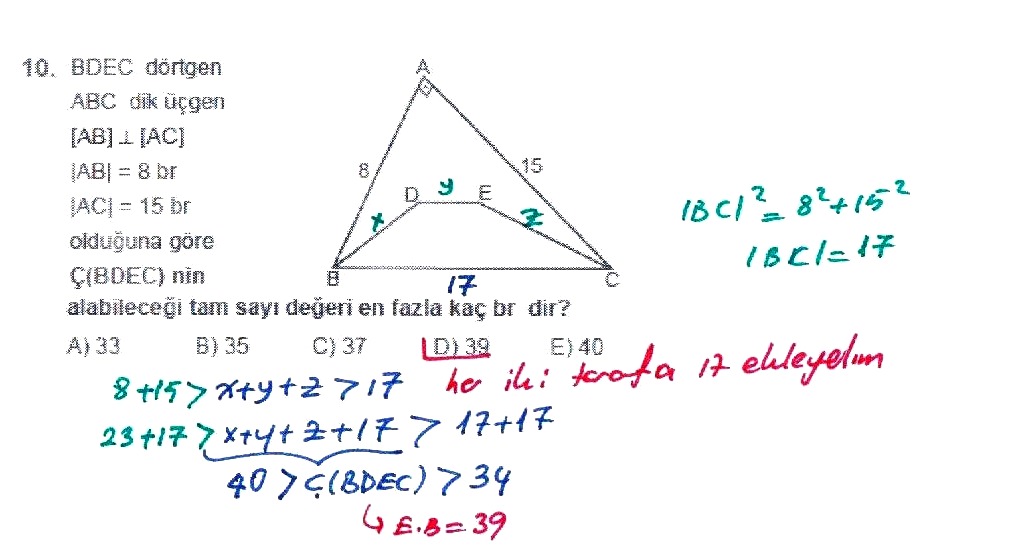 10. BDEC dörtgen
ABC dik üçgen
[AB] ⊥ [AC]
|AB| = 8 br
|AC| = 15 br
olduğuna göre
Ç(BDEC) nin
alabileceği tam sayı değeri en fazla kaç br dir?
A
8
15
D
y
E
x
z
B
17
C
|BC|² = 8² + 15²
|BC| = 17
A) 33 B) 35 C) 37 D) 39 E) 40
8+15 > x+y+z > 17 her iki tarafa 17 ekleyelim
23+17 > x+y+z+17 > 17+17
40 > Ç(BDEC) > 34
↳ E.B = 39